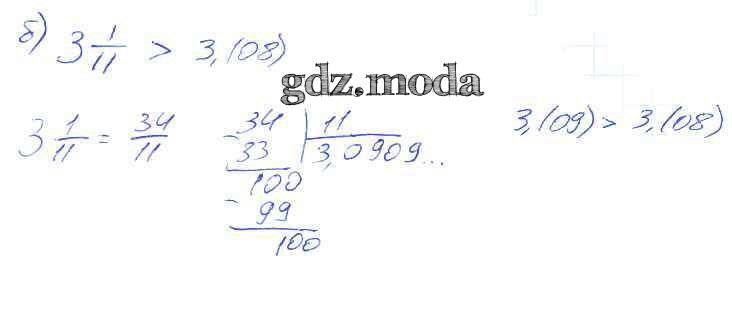 б) 3 1/11 > 3,(08)
gdz.moda
3 1/11 = 34/11
34 | 11
- 33 | 3,0909...
100
- 99
100
3,(09) > 3,(08)